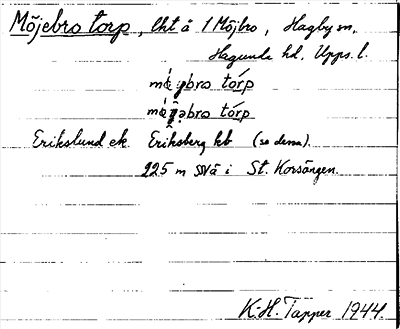 Möjebro torp, lht å 1 Möjbro, Hagby sn,
Hagunda hd, Upps. l.
torp
torp
Erikslund ek Eriksberg kb (se dessa).
225 m SSV å i St. Korsängen.
K-H. Tapper 1944.